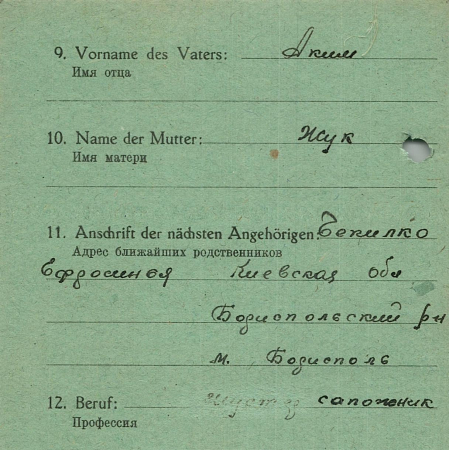 9. Vorname des Vaters: Аким
Имя отца
10. Name der Mutter: Жук
Имя матери
11. Anschrift der nächsten Angehörigen: Бекилко
Адрес ближайших родственников
Ефросинья Киевская обл
Бориспольский рн
м. Борисполь
12. Beruf: сапожник
Профессия